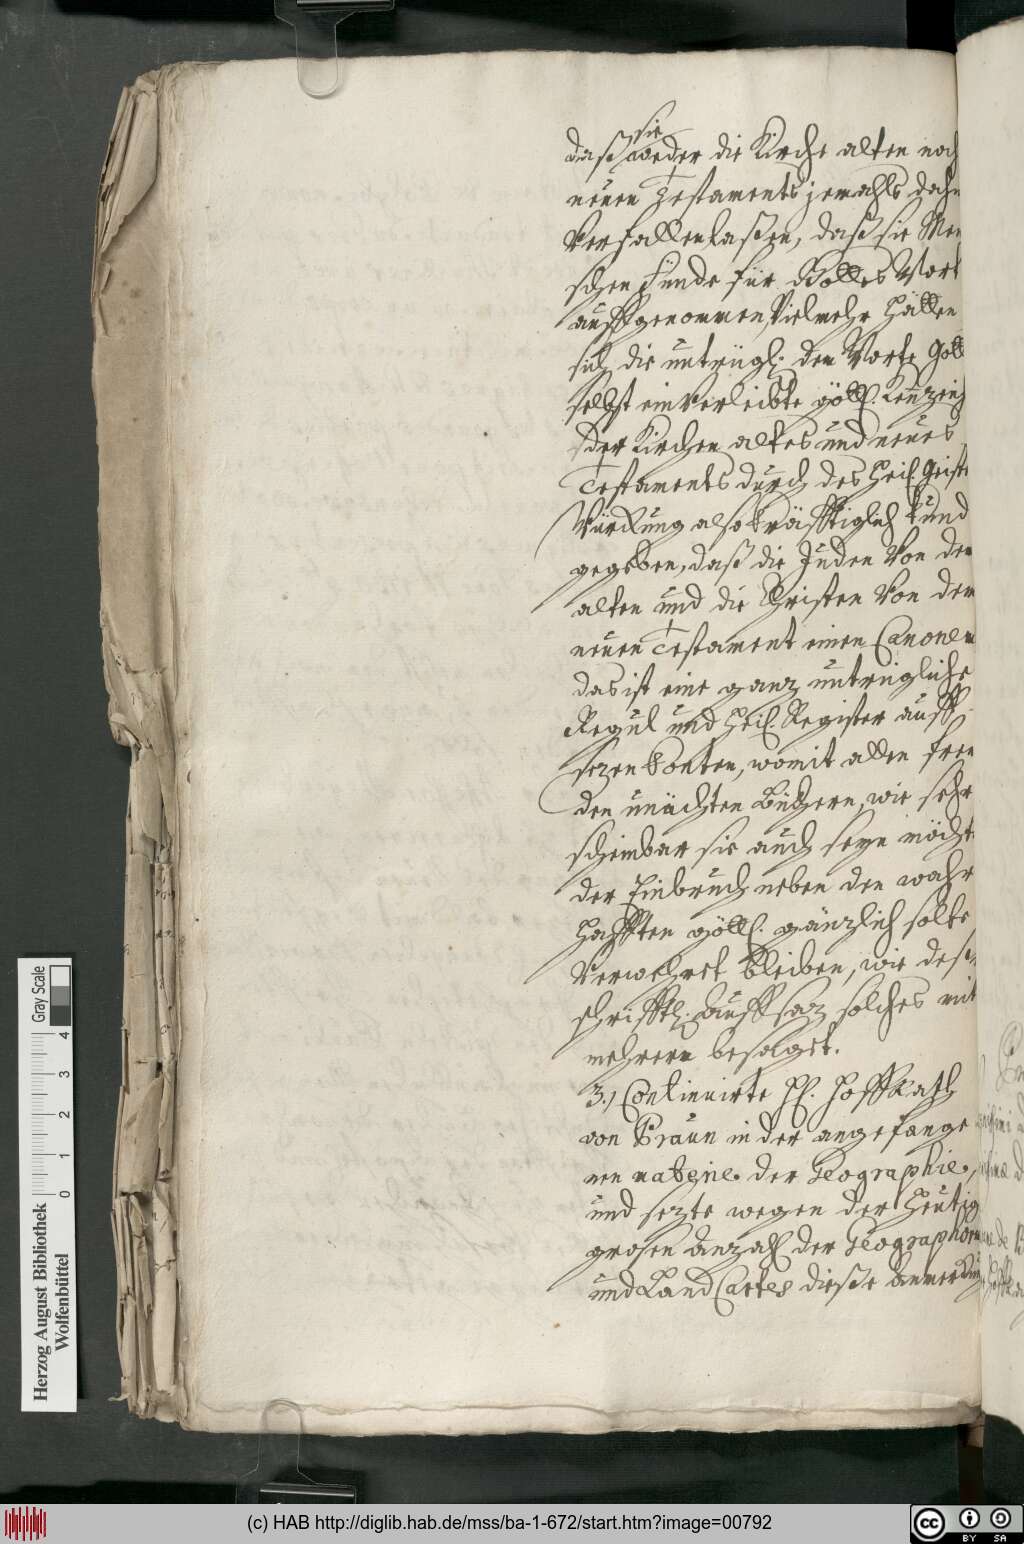 sie
daß weder die Kirche alten noch
neuen Testaments jemahls dahin
verfallen laßen, daß sie Men
schen Funde für Gottes Wort
auffgenommen, Vielmehr hätten
sich die untrügl. dem Worte Gott
selbst einverleibte göttl. Kennzeich
der Kirchen altes und neues
Testaments durch des Heil. Geistes
Würckung also kräfftiglich kund
gegeben, daß die Juden von dem
alten und die Christen von dem
neuen Testament einen Canonem
das ist eine ganz untrügliche
Regul und Heil. Register auff
sezen konten, womit allen frem
den unächten Büchern, wie sehr
scheinbar sie auch seyn möchte
der Einbruch neben den wahr
hafften göttl. gänzlich solte
verwehret bleiben, wie deß
schrifftl. Auffsaz solches mit
mehrern besaget.
3.) Continuirte H. Hoffrath
von Praun in der angefange
nen materie der Geographie,
und sezte wegen der heutig
grosen Anzahl der Geographorum
und Land Carten dieße Anmerckung
Herzog August Bibliothek
Wolfenbüttel
0 1 2 3 4
Gray Scale
(c) HAB http://diglib.hab.de/mss/ba-1-672/start.htm?image=00792
cc BY SA